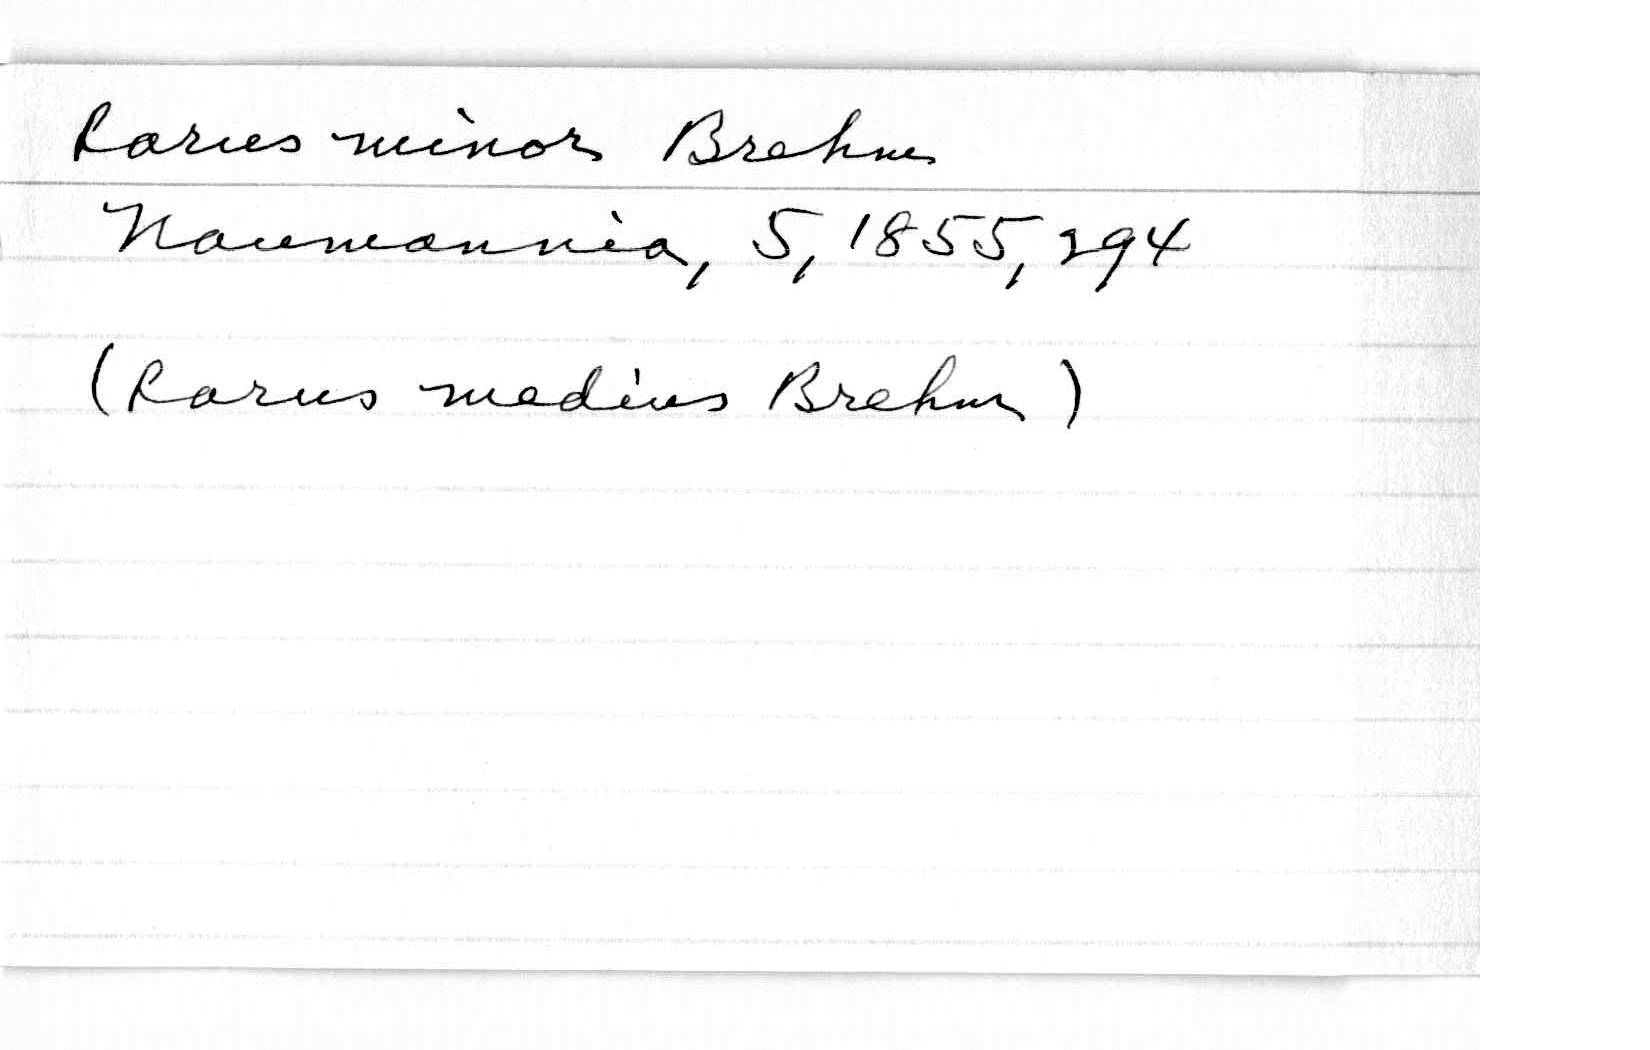 Larus minor Brehm
Naumannia, 5, 1855, 294
(Larus medius Brehm)